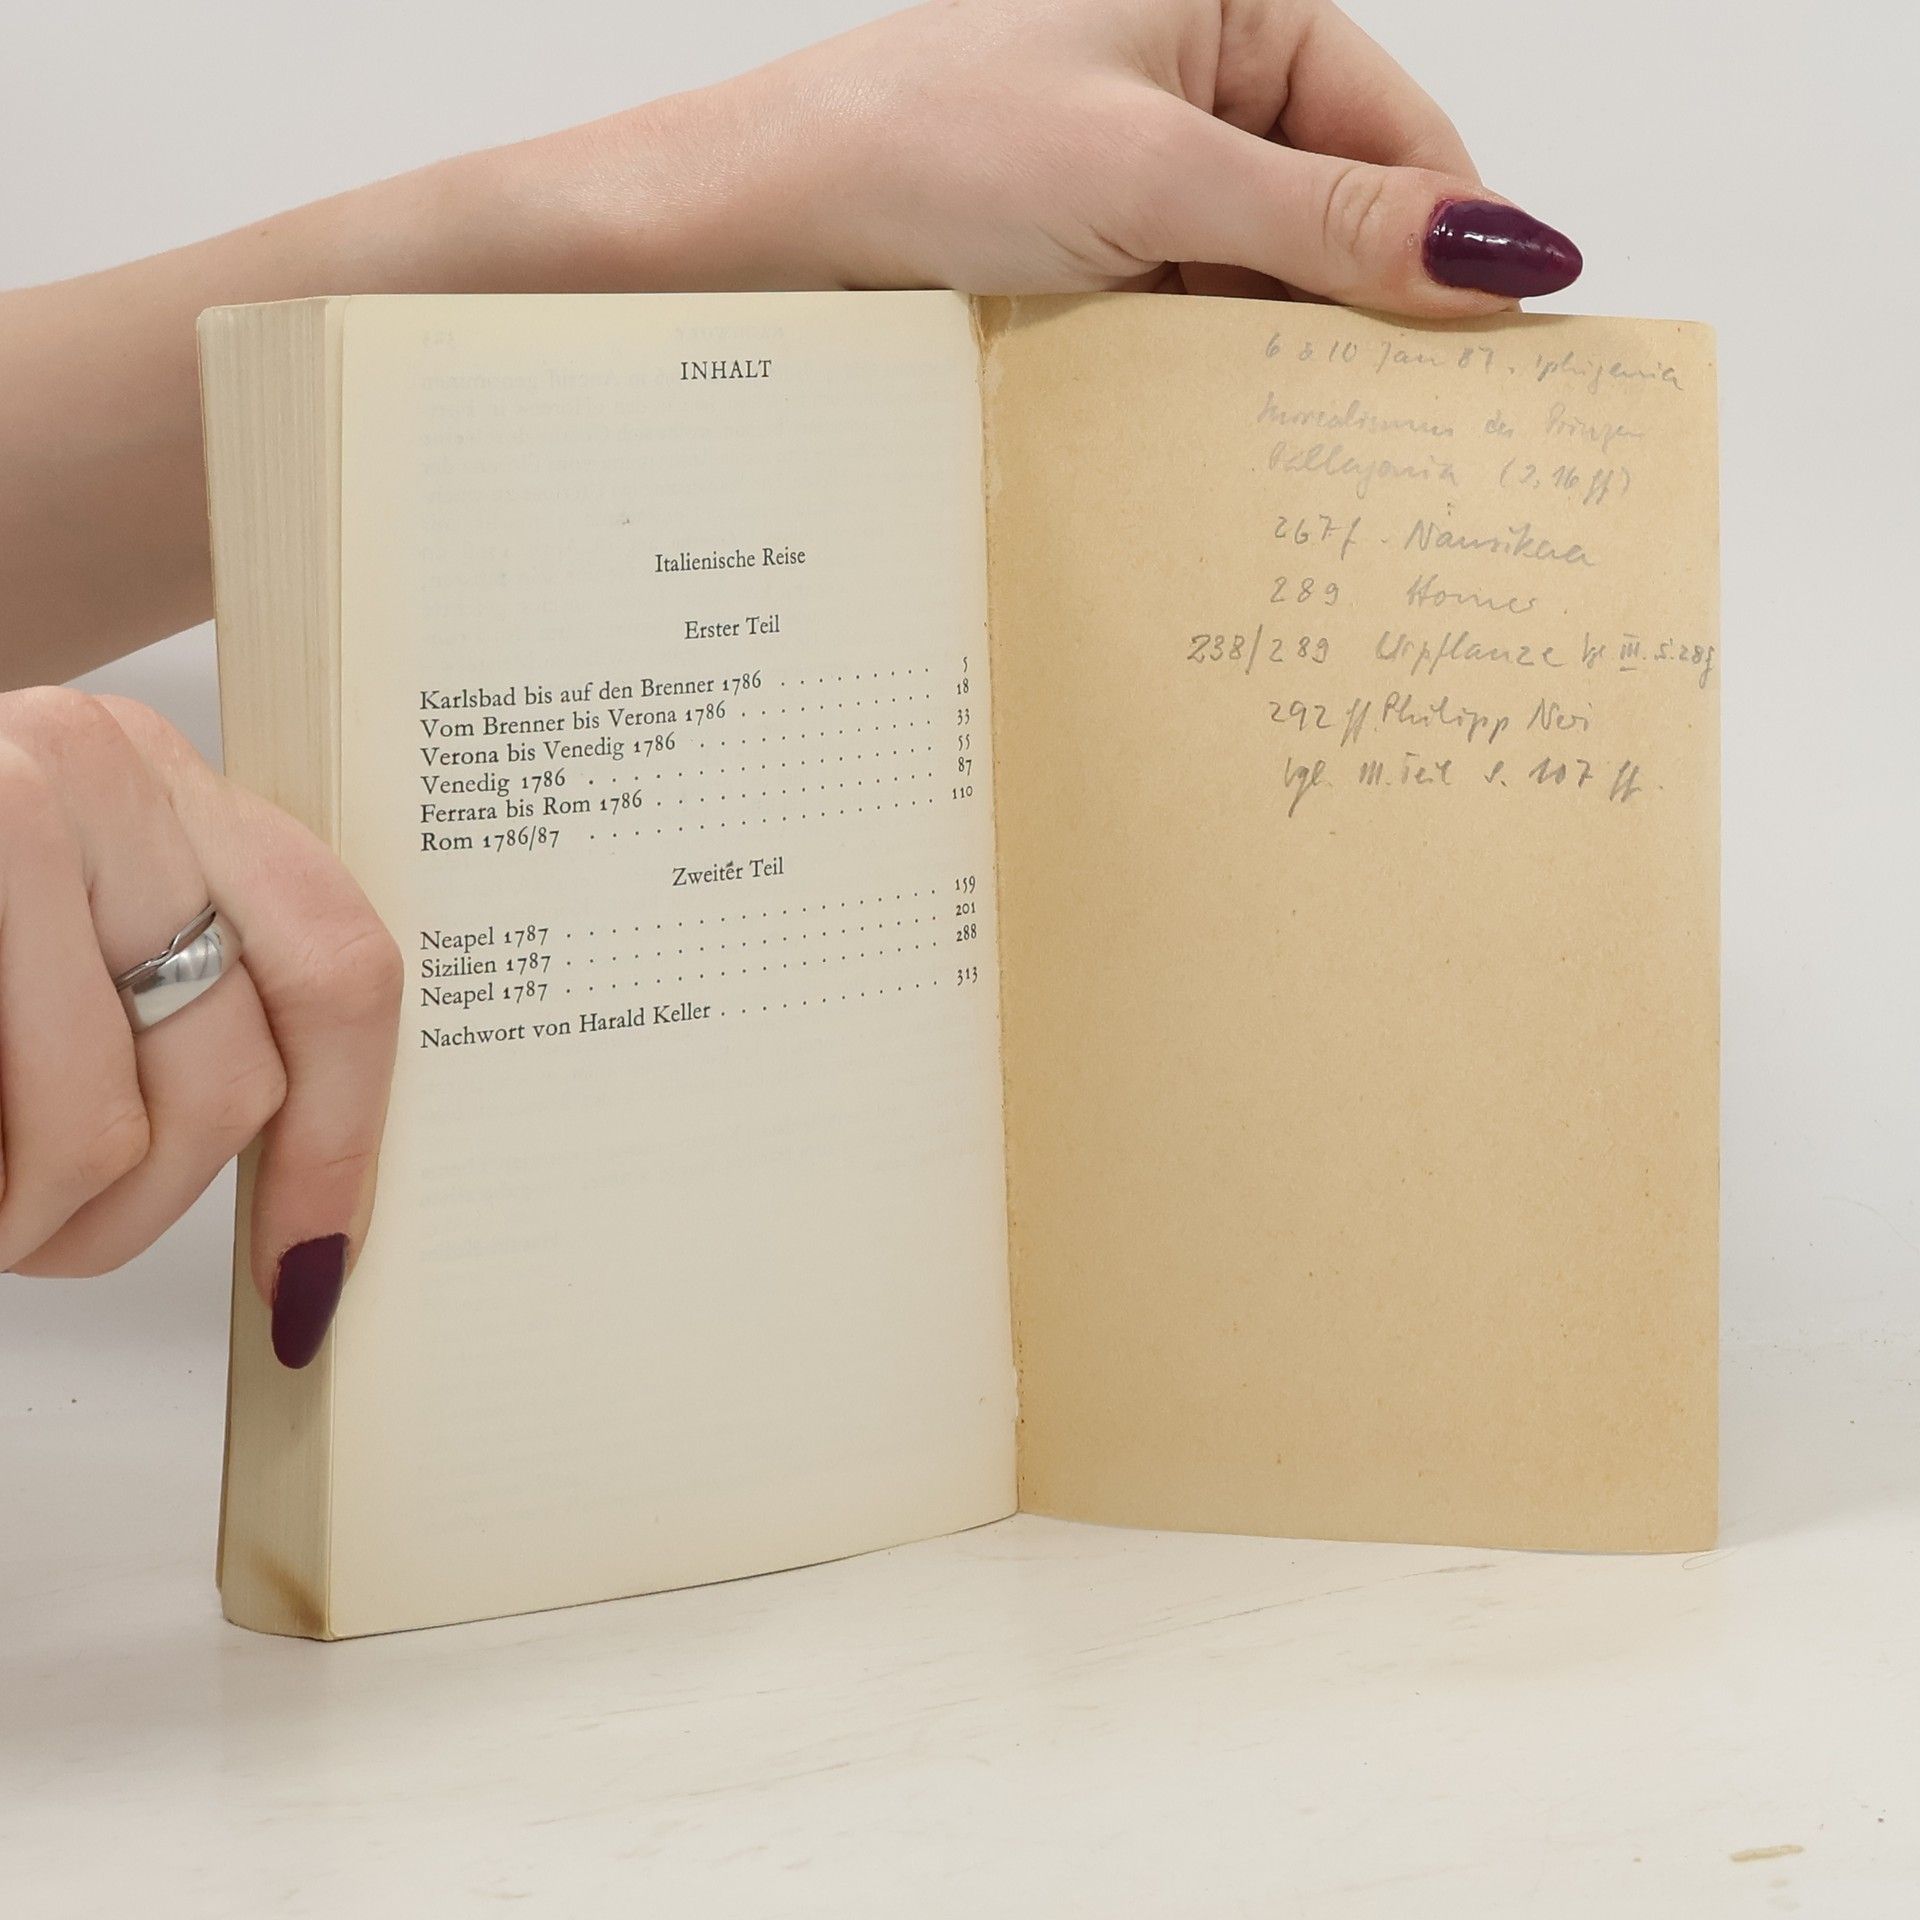 INHALT
Italienische Reise
Erster Teil
Karlsbad bis auf den Brenner 1786 . . . . . . . . . 5
Vom Brenner bis Verona 1786 . . . . . . . . . . 18
Verona bis Venedig 1786 . . . . . . . . . . . 33
Venedig 1786 . . . . . . . . . . . . . . . 55
Ferrara bis Rom 1786 . . . . . . . . . . . . 87
Rom 1786/87 . . . . . . . . . . . . . . . 110
Zweiter Teil
Neapel 1787 . . . . . . . . . . . . . . . 159
Sizilien 1787 . . . . . . . . . . . . . . . 201
Neapel 1787 . . . . . . . . . . . . . . . 288
Nachwort von Harald Keller . . . . . . . . . . . 313
6 & 10 Jan 87. Iphigenia
Surrealismus des Prinzen
Pallagonia (2, 16 ff)
267 f. Nausikaa
289 Homer.
238/289 Urpflanze vgl III. S. 289
292 ff. Philipp Neri
vgl. III. Teil S. 107 ff.